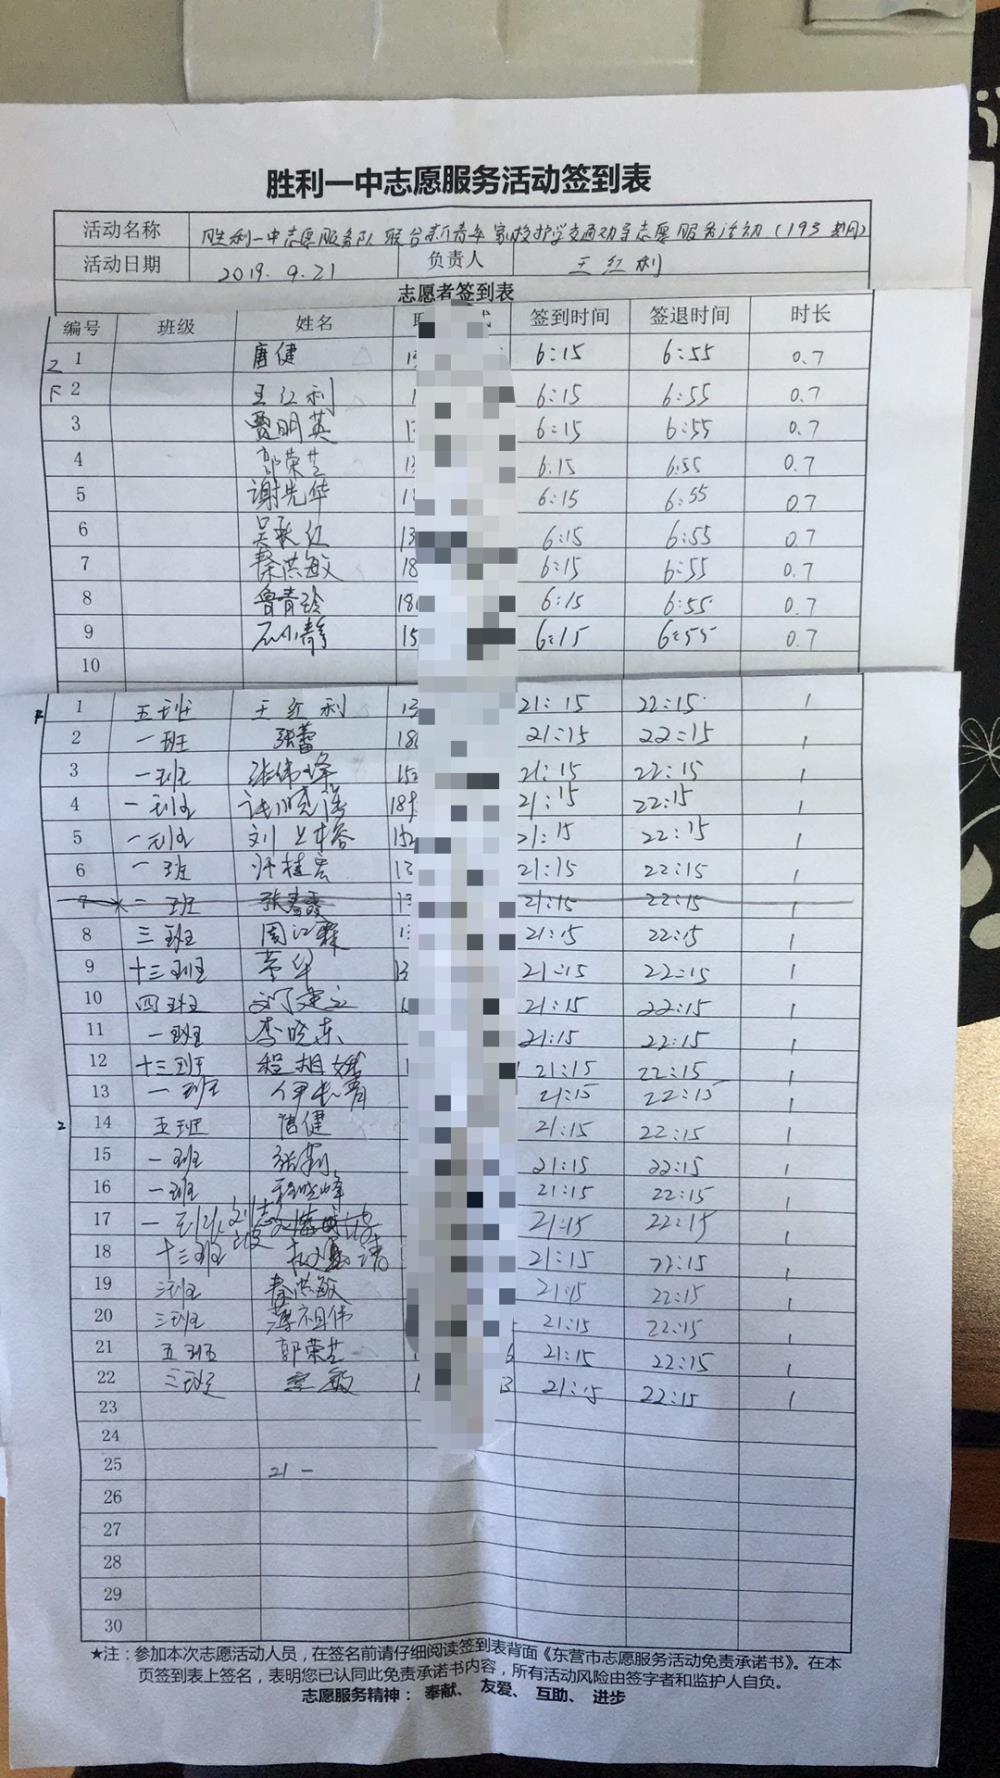 胜利一中志愿服务活动签到表
活动名称 胜利一中志愿服务队联合新青年家校护学交通劝导志愿服务活动(195期)
活动日期 2019.9.21 负责人 王红利
志愿者签到表
编号 班级 姓名 签到时间 签退时间 时长
2 1 唐健 6:15 6:55 0.7
2 王红利 6:15 6:55 0.7
3 贾明英 6:15 6:55 0.7
4 郭荣芝 13 6:15 6:55 0.7
5 谢先华 6:15 6:55 0.7
6 吴秋红 13 6:15 6:55 0.7
7 秦洪敏 18 6:15 6:55 0.7
8 鲁青玲 18 6:15 6:55 0.7
9 石小静 15 6:15 6:55 0.7
10
1 五班 王红利 13 21:15 22:15 1
2 一班 张蕾 18 21:15 22:15 1
3 一班 张伟峰 15 21:15 22:15 1
4 一班 18 21:15 22:15 1
5 一班 刘 152 21:15 22:15 1
6 一班 许桂宏 13 21:15 22:15 1
7 一班 21:15 22:15 1
8 三班 周江霖 21:15 22:15 1
9 十三班 荣华 13 21:15 22:15 1
10 四班 刘建立 21:15 22:15 1
11 一班 李晓东 21:15 22:15 1
12 十三班 程相 21:15 22:15 1
13 一班 21:15 22:15 1
2 14 五班 唐健 21:15 22:15 1
15 一班 张莉 21:15 22:15 1
16 一班 程晓峰 21:15 22:15 1
17 一班 21:15 22:15 1
18 十三班 21:15 22:15 1
19 三班 秦洪敏 21:15 22:15 1
20 三班 薄祖伟 21:15 22:15 1
21 五班 郭荣芝 21:15 22:15 1
22 三班 敏 21:15 22:15 1
23
24
25 21
26
27
28
29
30
★注:参加本次志愿活动人员,在签名前请仔细阅读签到表背面《东营市志愿服务活动免责承诺书》。在本
页签到表上签名,表明您已认同此免责承诺书内容,所有活动风险由签字者和监护人自负。
志愿服务精神: 奉献、 友爱、 互助、 进步